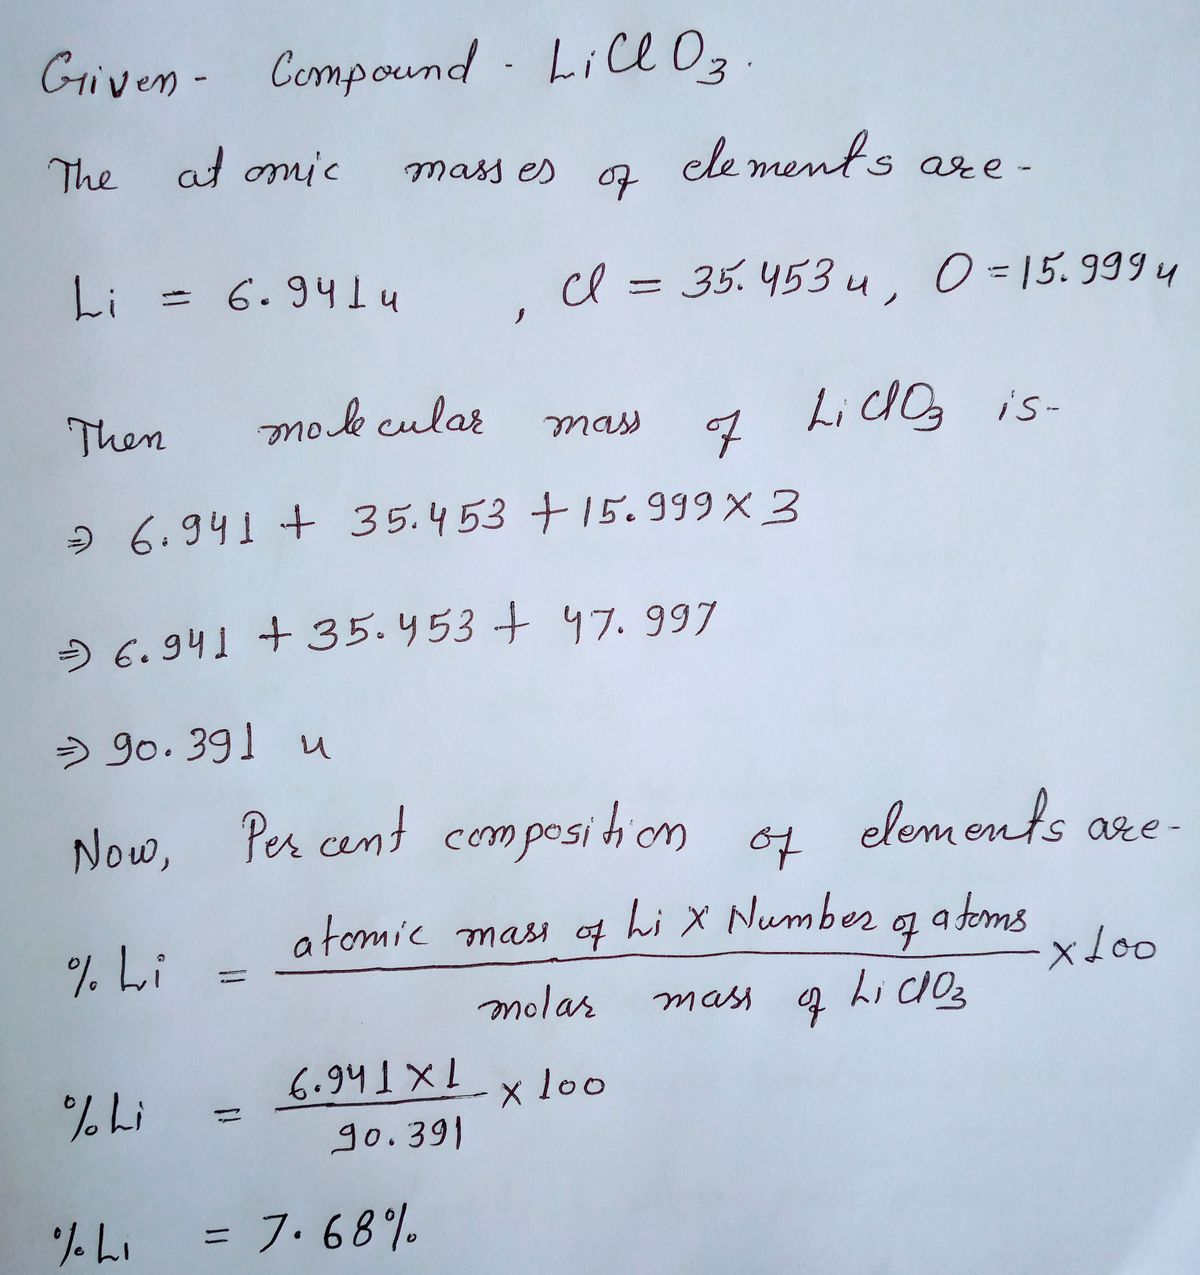 Given - Compound - LiClO₃.
The atomic masses of elements are -
Li = 6.941u , Cl = 35.453u, O = 15.999u
Then molecular mass of LiClO₃ is-
⇒ 6.941 + 35.453 + 15.999 × 3
⇒ 6.941 + 35.453 + 47.997
⇒ 90.391 u
Now, Percent composition of elements are-
% Li = atomic mass of Li × Number of atoms / molar mass of LiClO₃ × 100
% Li = 6.941 × 1 / 90.391 × 100
% Li = 7.68%